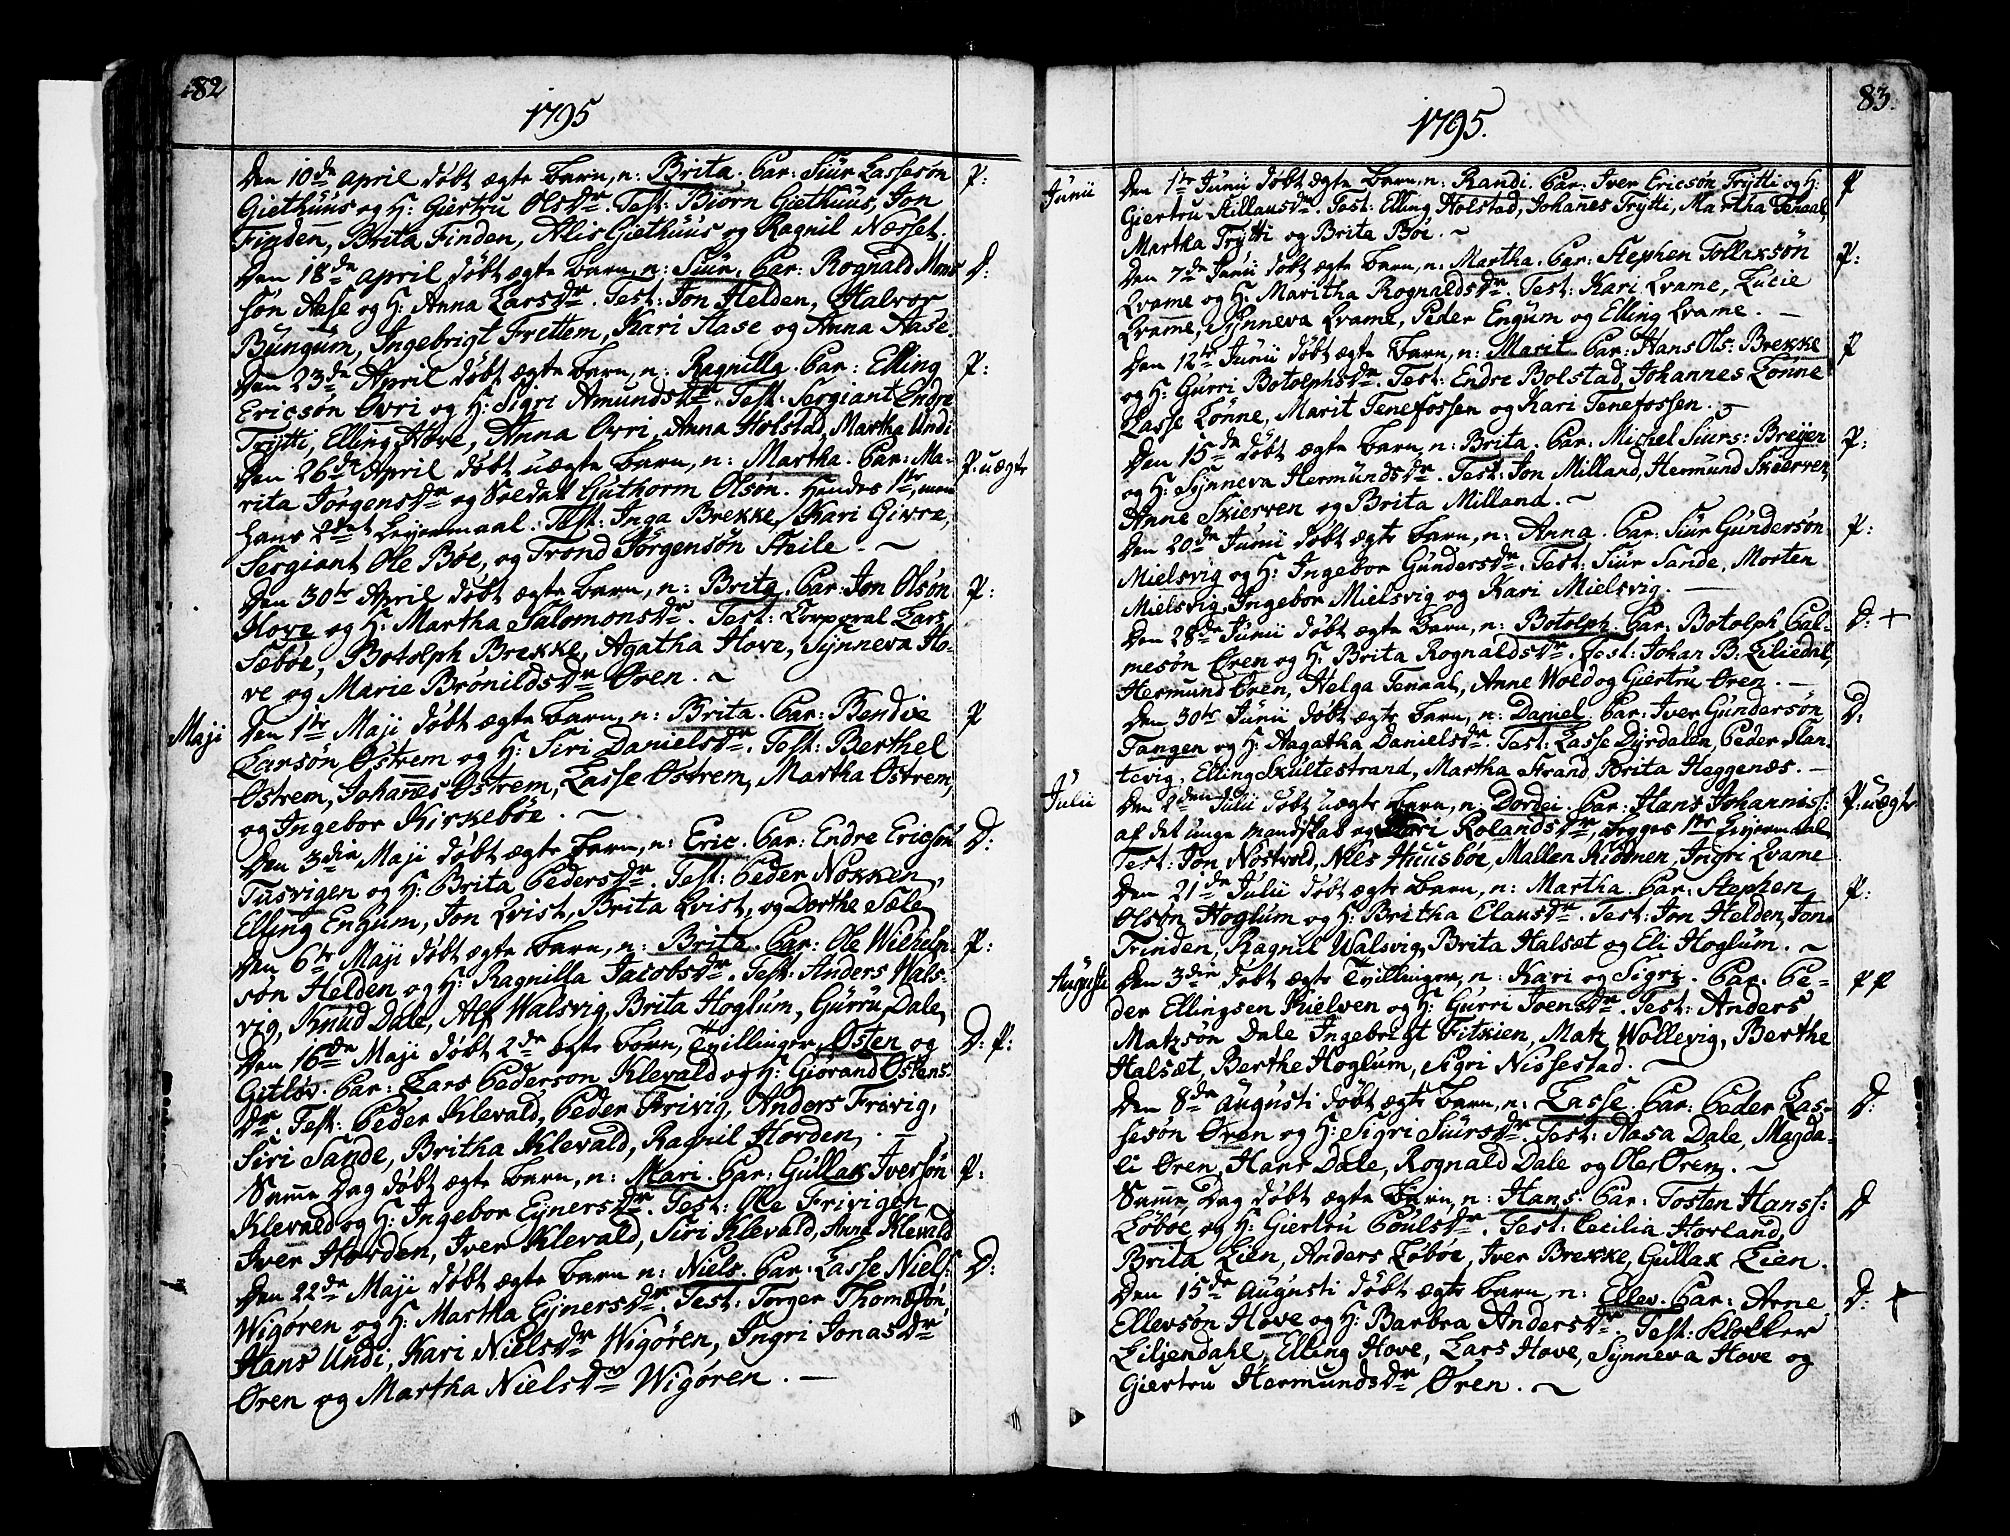 82
1795
Den 10de April døbt ægte Barn, n: Brita. Par: Siur Lassesøn P:
Giethuus og H: Giertru Olsdr. Test: Biørn Giethuus, Jon
Finden, Brita Finden, Alis Giethuus og Ragnil Næsset.
Den 18de April døbt ægte Barn, n: Siur. Par: Rognald Mons D:
søn Aase og H: Anna Larsdr. Test: Jon Helden, Halvor
Bungum, Ingebrigt Frettem, Kari Aase og Anna Aase.
Den 23de April døbt ægte Barn, n: Ragnilla. Par: Elling P:
Ericsøn Ovri og H: Sigri Amundsdr. Test: Sergiant Endre
Trytti, Elling Hove, Anna Ovri, Anna Holstad, Martha Undi
Den 26de April døbt uægte Barn, n: Martha. Par: Ma- P. uægte
rita Jørgensdr og Soldat Guthorm Olsøn. Hendes 1te, men
hans 2det Leyermaal. Test: Inga Brekke, Kari Givre,
Sergiant Ole Bøe, og Trond Jørgensøn Steile. ~
Den 30te April døbt ægte Barn, n: Brita. Par: Jon Olsøn P:
Hove og H: Martha Salomonsdr. Test: Corporal Lars
Sæbøe, Botolph Brekke, Agatha Hove, Synneva Ho-
ve og Marie Brønildsdr Øren. ~
Maji Den 1te Maji døbt ægte Barn, n: Brita. Par: Bendve P
Larsøn Østrem og H: Siri Danielsdr. Test: Berthel
Østrem, Johannes Østrem, Lasse Østrem, Martha Østrem,
og Ingebor Kirkebøe. ~
Den 3die Maji døbt ægte Barn, n: Eric. Par: Endre Ericsøn D:
Tusvigen og H: Brita Pedersdr. Test: Peder Nokken,
Elling Engum, Jon Qvist, Brita Qvist, og Dorthe Sæle
Den 6te Maji døbt ægte Barn, n: Brita. Par: Ole Wilhelm- P:
søn Helden og H: Ragnilla Jacobsdr. Test: Anders Wals-
vig, Knud Dale, Alf Walsvig, Brita Hoglum, Gurru Dale,
Den 16de Maji døbt 2de ægte Børn, Tvillinger, Østen og D: P:
Gitløv. Par: Lars Pederson Klevald og H: Giørand Østens-
dr. Test: Peder Klevald, Peder Frivig, Anders Frivig,
Siri Sande, Britha Klevald, Ragnil Horden. —
Samme Dag døbt ægte Barn, n: Mari. Par: Gullak Iversøn P:
Klevald og H: Ingebor Ejnersdr. Test: Ole Frivigen,
Iver Horden, Iver Klevald, Siri Klevald, Anne Klevald
Den 22de Maji døbt ægte Barn n: Niels. Par: Lasse Niels: D:
Wigøren og H: Martha Ejnersdr. Test: Torger Thomæsøn,
Hans Undi, Kari Nielsdr Wigøren, Ingri Jonasdr
Øren og Martha Nielsdr Wigøren. —
83.
1795.
Junii Den 1te Junii døbt ægte Barn, n: Randi. Par: Iver Ericsøn Trytti og H: P
Giertru Stillausdr. Test: Elling Holstad, Johannes Trytti, Martha Tenaal,
Martha Trytti og Brita Bøe. ~
Den 7de Junii døbt ægte Barn, n: Martha. Par: Stephen Tollaksøn P:
Qvame og H: Maritha Rognaldsdr. Test: Kari Qvame, Lucie
Qvame, Synneva Qvame, Peder Engum og Elling Qvame. —
Den 12te Junii døbt ægte Barn, n: Marit. Par: Hans Ols: Brekke P
og H: Gurri Botolphsdr. Test: Endre Bolstad, Johannes Lønne
Lasse Lønne, Marit Tenefossen og Kari Tenefossen.
Den 15de døbt ægte Barn, n: Brita. Par: Michel Siurs: Breyen P:
og H: Synneva Hermundsdr. Test: Jon Milland, Hermund Skierven,
Anne Skierven og Brita Milland. ~
Den 20de Junii døbt ægte Barn, n: Anna. Par: Siur Gundersøn P:
Mielsvig og H: Ingebor Gundersdr. Test: Siur Sande, Morten
Mielsvig, Ingebor Mielsvig og Kari Mielsvig. —
Den 28de Junii døbt ægte Barn, n: Botolph. Par: Botolph Pal- D: +
mesøn Øren og H: Brita Rognaldsdr. Test: Johan B: Liliedal,
Hermund Øren, Helga Tenaal, Anne Wold og Giertru Øren. —
Den 30te Junii døbt ægte Barn, n: Daniel. Par: Iver Gundersøn D:
Tangen og H: Aagatha Danielsdr. Test: Lasse Dyrdalen, Peder Slan-
tevig, Elling Skultestrand, Martha Strand, Brita Heggenæs. —
Julii Den 2den Julii døbt uægte Barn, n: Dordei. Par: Hans Johanness: P: uægte
af det unge Mandskab og Kari Rolandsdr, begges 1te Leyermaal
Test: Jon Nostvold, Nils Huusbøe, Mallen Kidmen, Ingri Qvame
Den 21de Julii døbt ægte Barn, n: Martha. Par: Stephen P:
Olsøn Hoglum og H: Britha Clausdr. Test: Jon Helden, Jon
Trinden, Ragnil Walsvig, Brita Halsæt og Eli Hoglum. ~
Augusti Den 3die døbt ægte Tvillinger, n: Kari og Sigri. Par: Pe- P P
der Ellingsen Kielven og H: Gurri Ivensdr. Test: Anders
Matzsøn Dale, Ingebrigt Fitkien, Matz Wollevig, Berthe
Halsæt, Berthe Hoglum, Sigri Nissestad. ~
Den 8de Augusti døbt ægte Barn, n: Lasse. Par: Peder Las- D:
sesøn Øren og H: Sigri Siursdr. Test: Aasa Dale, Magda-
li Øren, Hans Dale, Rognald Dale og Ole Øren. ~
Samme Dag døbt ægte Barn, n: Hans. Par: Tosten Hanss: D
Løbøe og H: Giertru Poulsdr. Test: Cecilia Horland,
Brita Lien, Anders Løbøe, Iver Brekke, Gullak Lien.
Den 15de Augusti døbt ægte Barn, n: Ellev. Par: Arne D: +
Ellevsøn Hove og H: Barbra Andersdr. Test: Klokker
Liljendahl, Elling Hove, Lars Hove, Synneva Hove og
Giertru Hermundsdr Øren. ~